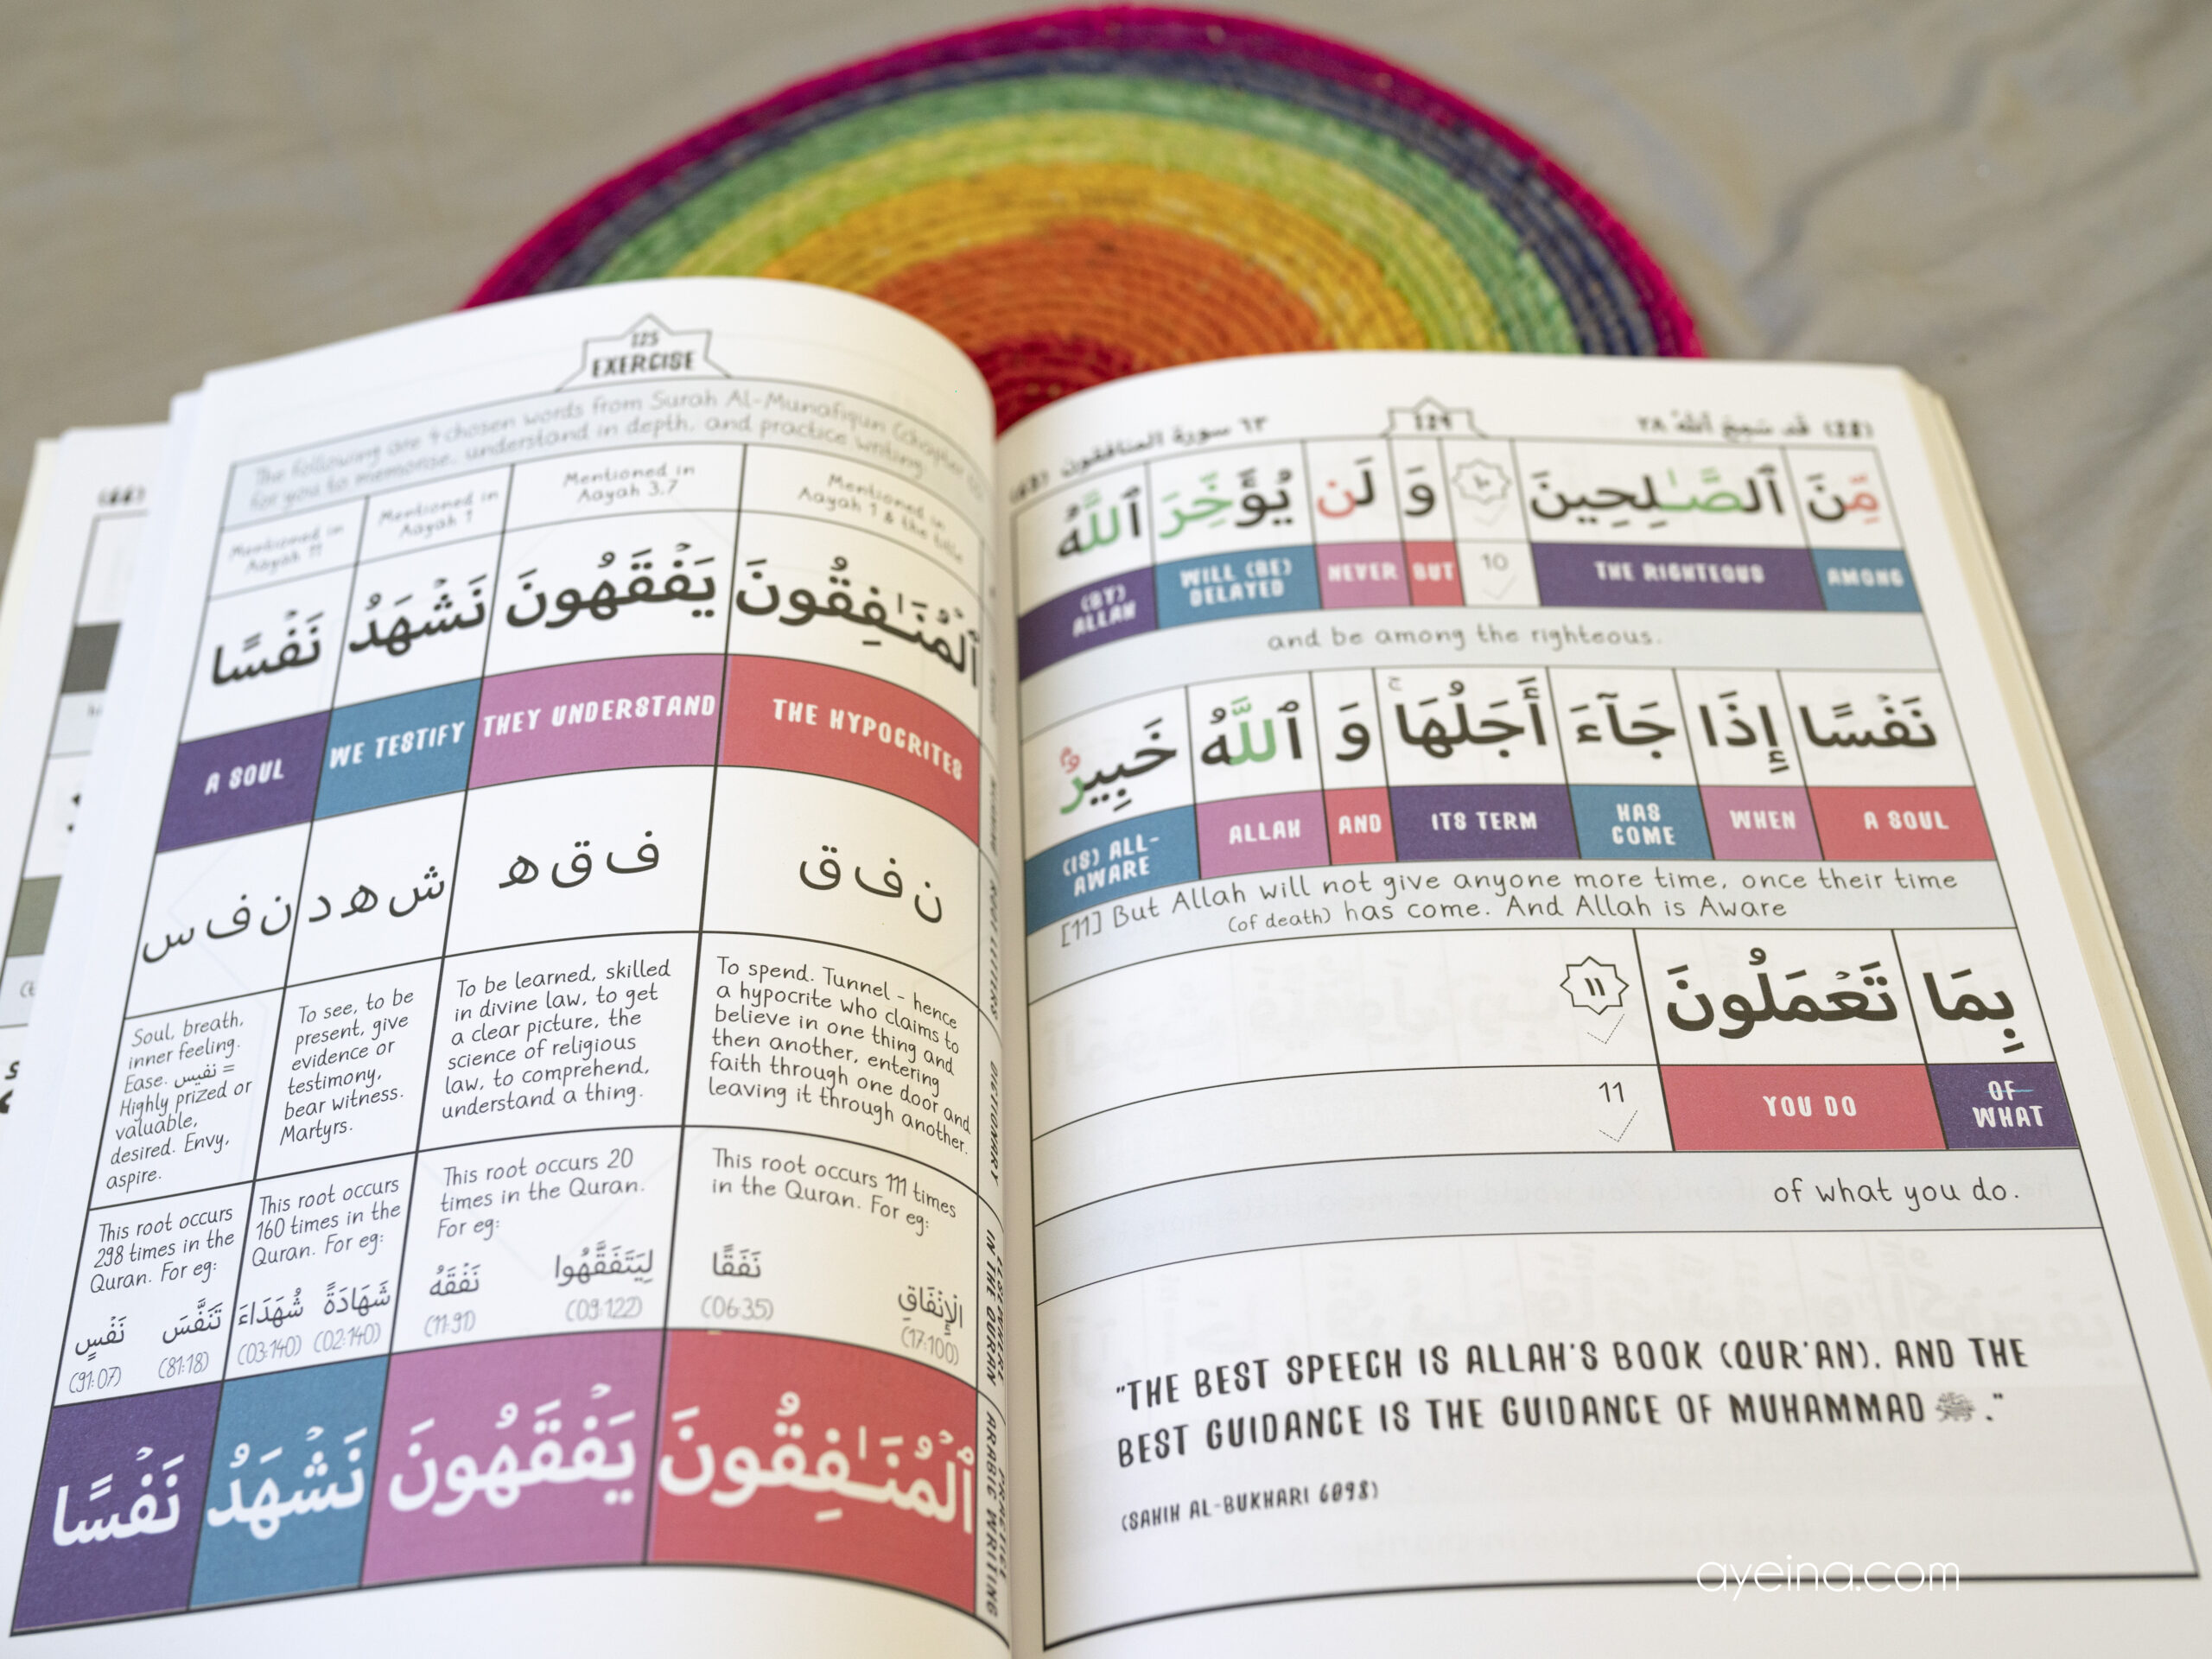 125
EXERCISE
The following are 4 chosen words from Surah Al-Munafiqun (chapter
for you to memorise, understand in depth, and practice writing.
Mentioned in
Aayah 11
Mentioned in
Aayah 1
Mentioned in
Aayah 3,7
Mentioned in
Aayah 1 & the title
نَفْسًا نَشْهَدُ يَفْقَهُونَ ٱلْمُنَـٰفِقُونَ
A SOUL
WE TESTIFY
THEY UNDERSTAND
THE HYPOCRITES
ن ف س
ش ه د
ف ق ه
ن ف ق
ROOT LETTERS
Soul, breath,
inner feeling.
Ease. نفيس =
Highly prized or
valuable,
desired. Envy,
aspire.
To see, to be
present, give
evidence or
testimony,
bear witness.
Martyrs.
To be learned, skilled
in divine law, to get
a clear picture, the
science of religious
law, to comprehend,
understand a thing.
To spend. Tunnel - hence
a hypocrite who claims to
believe in one thing and
then another, entering
faith through one door and
leaving it through another.
DICTIONARY
This root occurs
298 times in the
Quran. For eg:
نَفْسٍ تَنَفَّسَ
(91:07) (81:18)
This root occurs
160 times in the
Quran. For eg:
شُهَدَاءَ شَهَادَةً
(03:140) (02:140)
This root occurs 20
times in the Quran.
For eg:
نَفْقَهُ لِيَتَفَقَّهُوا
(11:91) (09:122)
This root occurs 111 times
in the Quran. For eg:
نَفَقًا الْإِنْفَاقِ
(06:35) (17:100)
ELSEWHERE
IN THE QURAN
نَفْسًا نَشْهَدُ يَفْقَهُونَ ٱلْمُنَـٰفِقُونَ
PRACTICE
ARABIC WRITING
٦٣ سورة المنافقون
124
(28) قد سمع الله ٢٨
مِّنَ ٱلصَّـٰلِحِينَ ١٠ وَ لَن يُؤَخِّرَ ٱللَّهُ
(BY)
ALLAH
WILL (BE)
DELAYED
NEVER
BUT
10
THE RIGHTEOUS
AMONG
and be among the righteous.
نَفْسًا إِذَا جَآءَ أَجَلُهَا ۚ وَ ٱللَّهُ خَبِيرٌۢ
(IS) ALL-
AWARE
ALLAH
AND
ITS TERM
HAS
COME
WHEN
A SOUL
[11] But Allah will not give anyone more time, once their time
(of death) has come. And Allah is Aware
بِمَا تَعْمَلُونَ ١١
11
YOU DO
OF
WHAT
of what you do.
"THE BEST SPEECH IS ALLAH'S BOOK (QUR'AN), AND THE
BEST GUIDANCE IS THE GUIDANCE OF MUHAMMAD ﷺ."
(SAHIH AL-BUKHARI 6098)
ayeina.com